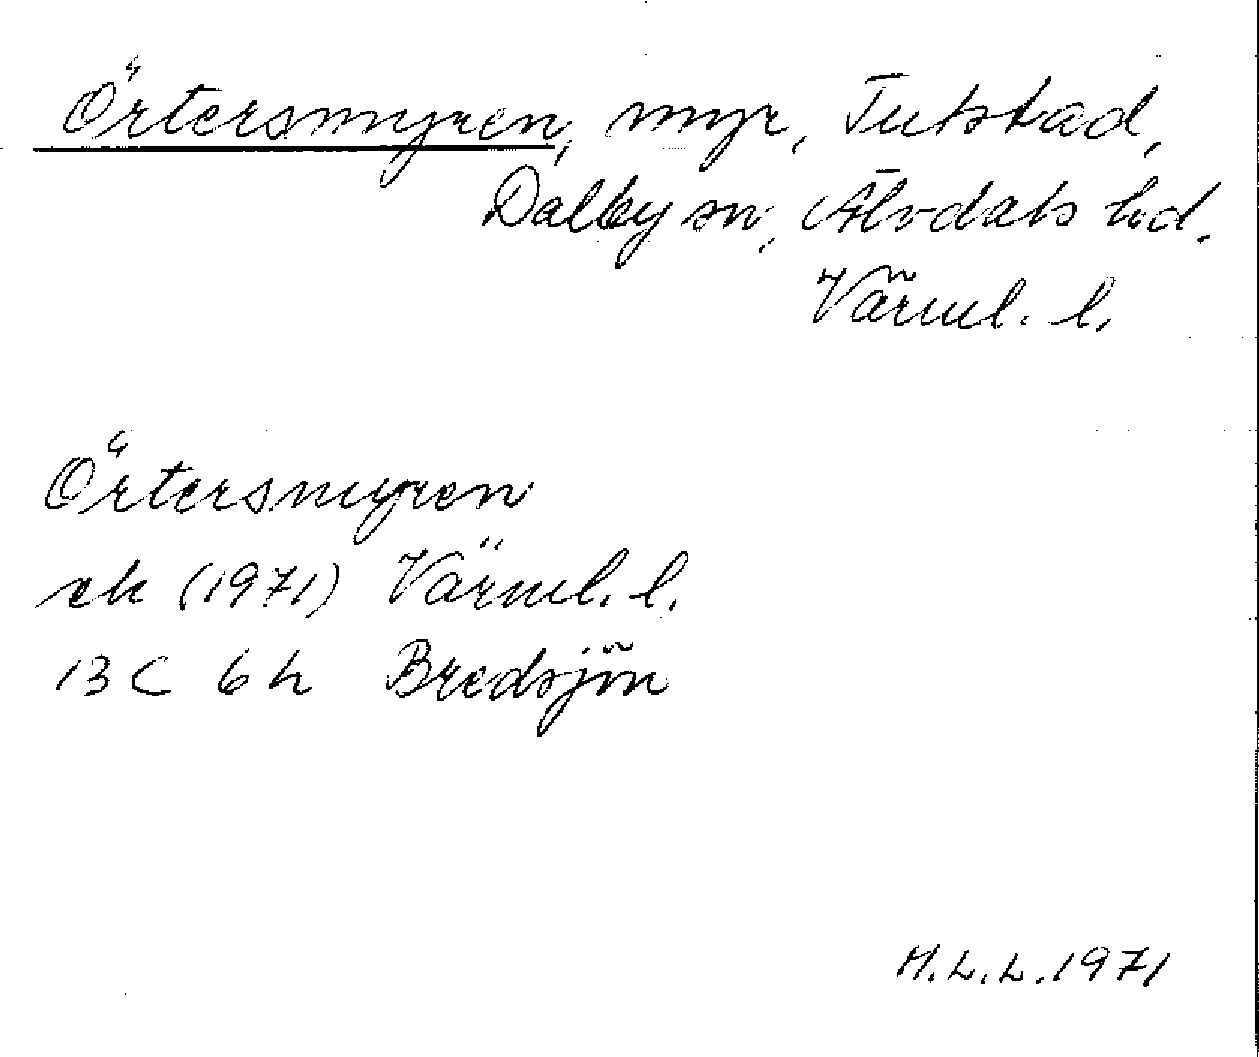 Örtersmyren, myr, Tutstad,
Dalby sn, Älvdals hd.
Värml. l.
Örtersmyren
ek (1971) Värml. l.
13 C 6 h Bredsjön
H.L.L. 1971